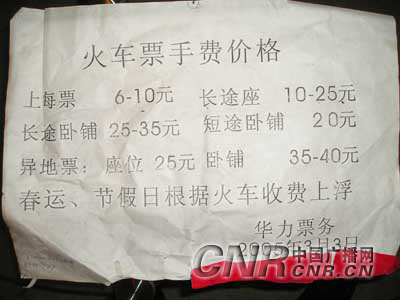 火车票手费价格
上每票 6-10元 长途座 10-25元
长途卧铺 25-35元 短途卧铺 20元
异地票：座位 25元 卧铺 35-40元
春运、节假日根据火车收费上浮
华力票务
2005年3月3日
CNR 中国广播网
CNR.CN